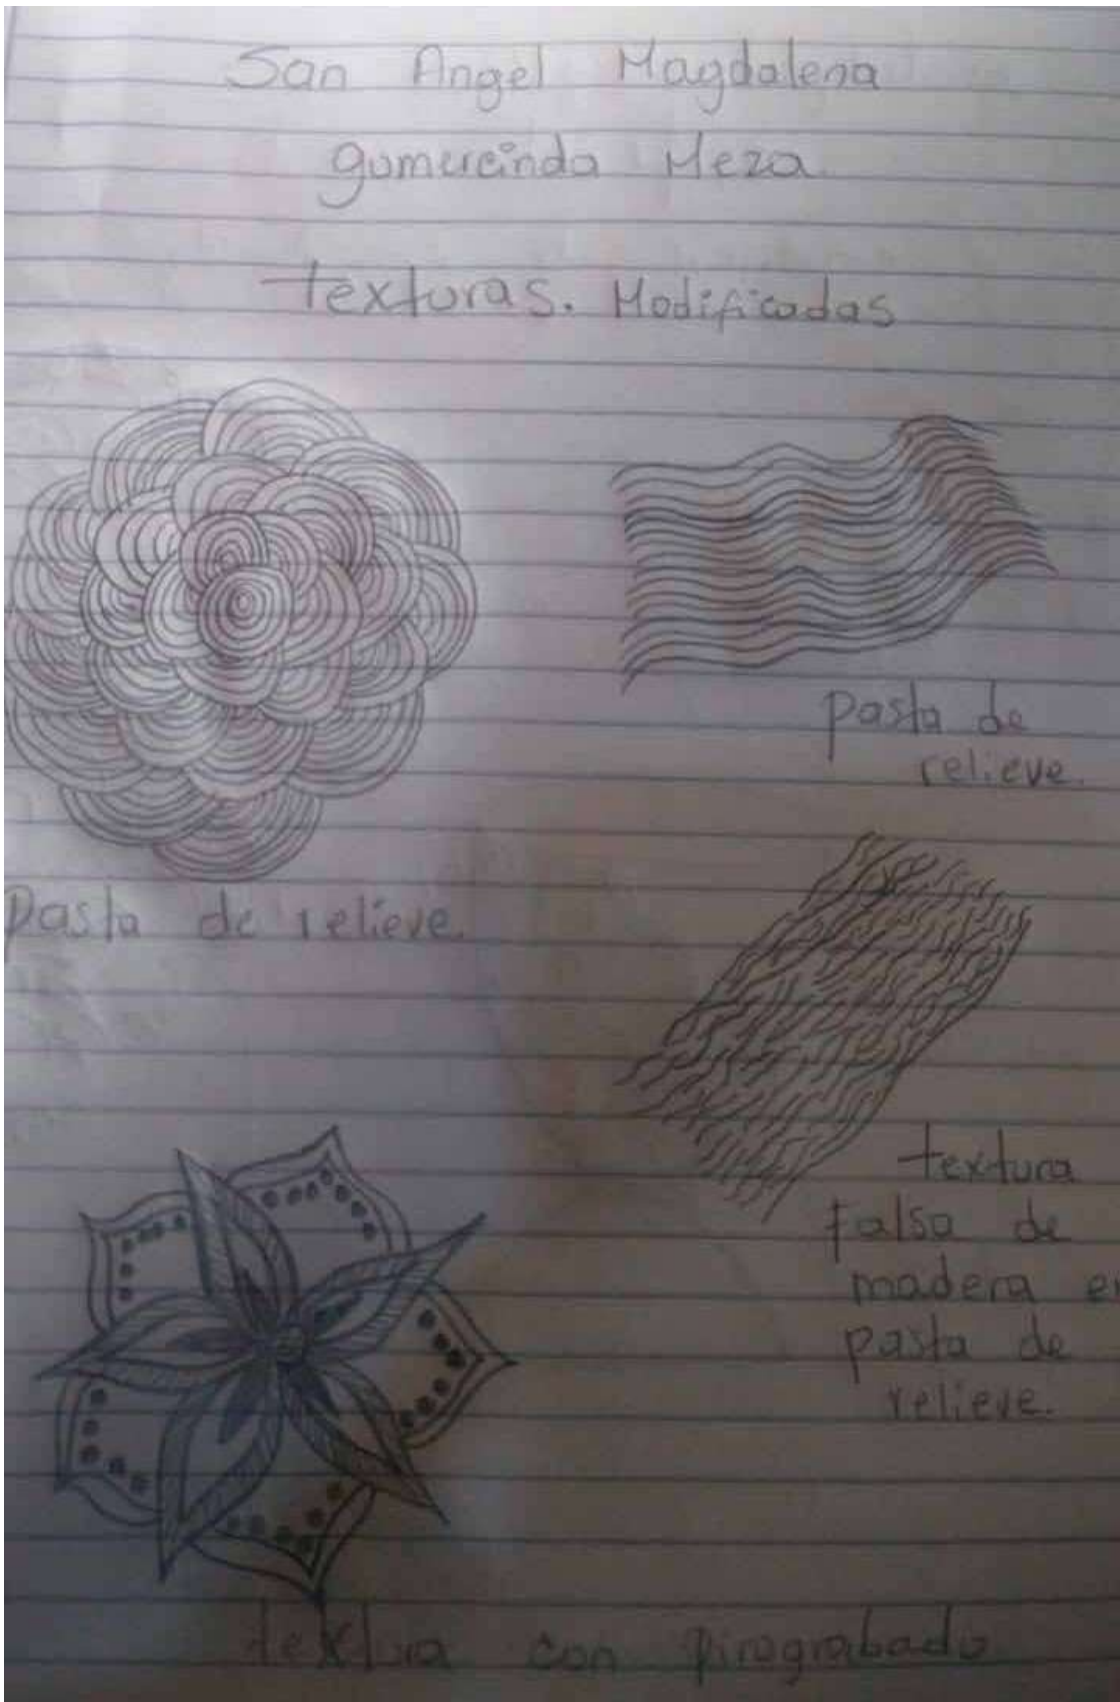 San Angel Magdalena
gumercinda Meza
texturas. Modificadas
pasta de
relieve.
Pasta de relieve.
textura
falsa de
madera en
pasta de
relieve.
textura con pirograbado